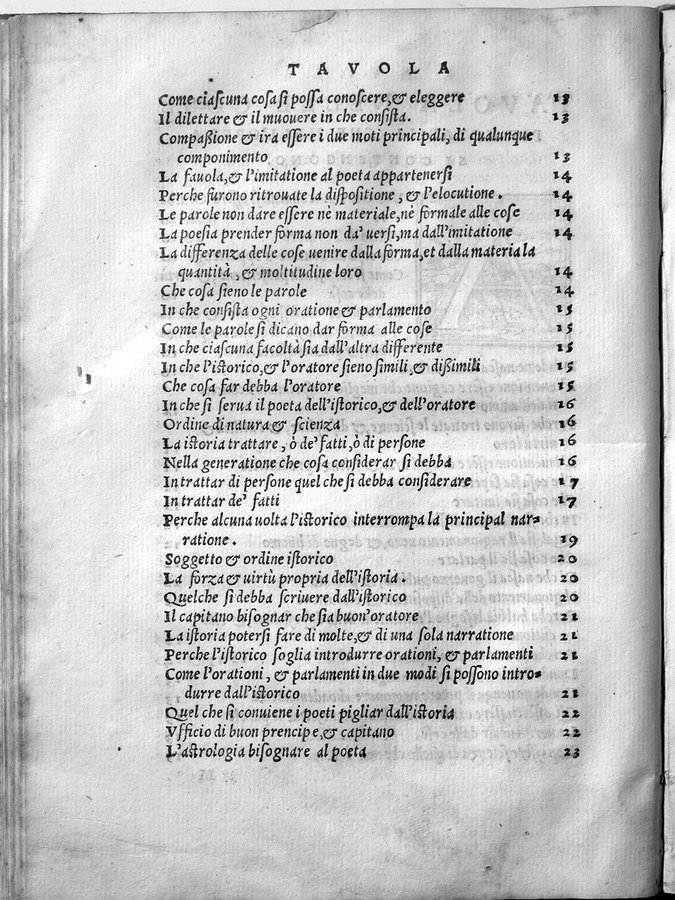 TAVOLA
Come ciascuna cosa si possa conoscere,& eleggere 13
Il dilettare & il muouere in che consista. 13
Compaßione & ira essere i due moti principali, di qualunque
componimento 13
La fauola,& l'imitatione al poeta appartenersi 14
Perche furono ritrouate la dispositione , & l'elocutione . 14
Le parole non dare essere nè materiale,nè formale alle cose 14
La poesia prender forma non da' uersi,ma dall'imitatione 14
La differenza delle cose uenire dalla forma,et dalla materia la
quantità , & moltitudine loro 14
Che cosa sieno le parole 14
In che consista ogni oratione & parlamento 15
Come le parole si dicano dar forma alle cose 15
In che ciascuna facoltà sia dall'altra differente 15
In che l'istorico,& l'oratore sieno simili,& dißimili 15
Che cosa far debba l'oratore 15
In che si serua il poeta dell'istorico,& dell'oratore 16
Ordine di natura & scienza 16
La istoria trattare , ò de' fatti,ò di persone 16
Nella generatione che cosa considerar si debba 16
In trattar di persone quel che si debba considerare 17
In trattar de' fatti 17
Perche alcuna uolta l'istorico interrompa la principal nar=
ratione . 19
Soggetto & ordine istorico 20
La forza & uirtù propria dell'istoria . 20
Quelche si debba scriuere dall'istorico 20
Il capitano bisognar che sia buon'oratore 21
La istoria potersi fare di molte,& di una sola narratione 21
Perche l'istorico soglia introdurre orationi, & parlamenti 21
Come l'orationi , & parlamenti in due modi si possono intro=
durre dall'istorico 21
Quel che si conuiene i poeti pigliar dall'istoria 22
Vfficio di buon prencipe,& capitano 22
L'astrologia bisognare al poeta 23